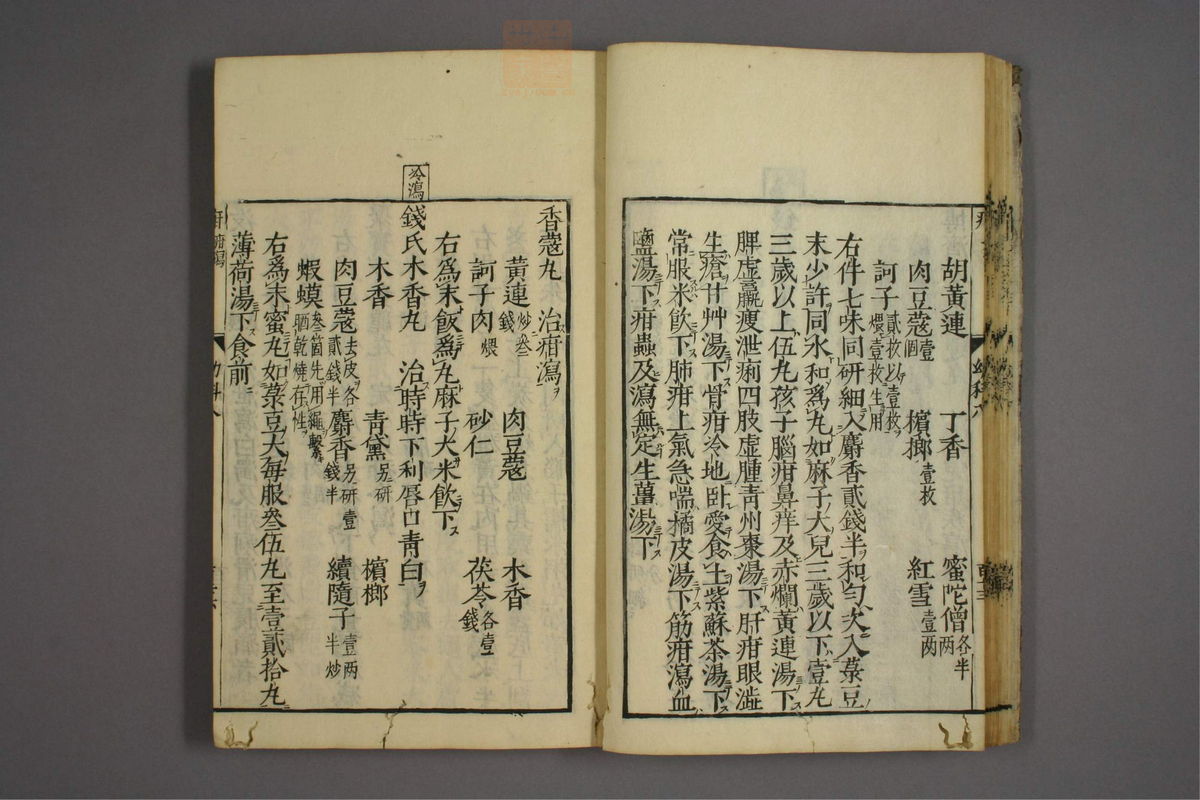 胡黃連 丁香 蜜陀僧各半両
肉豆蔻壹個 檳榔壹枚 紅雪壹両
訶子貳枚以壹枚煨壹枚生用
右件七味同研細入麝香貳錢半和勻次入菉豆
末少許同水和爲丸如麻子大兒三歲以下壹丸
三歲以上伍丸孩子腦疳鼻痒及赤爛黃連湯下
脾虛羸瘦泄痢四肢虛腫青州棗湯下肝疳眼澁
生瘡甘艸湯下骨疳冷地臥愛食土紫蘇茶湯下
常服米飲下肺疳上氣急喘橘皮湯下筋疳瀉血
鹽湯下疳蟲及瀉無定生薑湯下
香蔻丸 治疳瀉
黃連炒叁錢 肉豆蔻 木香
訶子肉煨 砂仁 茯苓各壹錢
右爲末飯爲丸麻子大米飲下
冷瀉
錢氏木香丸 治時時下利唇口青白
木香 青黛另研 檳榔
肉豆蔻去皮各貳錢半 麝香另研壹錢半 續隨子壹両半炒
蝦蟆叁箇先用繩繫晒乾燒存性
右爲末蜜丸如菉豆大每服叁伍丸至壹貳拾丸
薄荷湯下食前